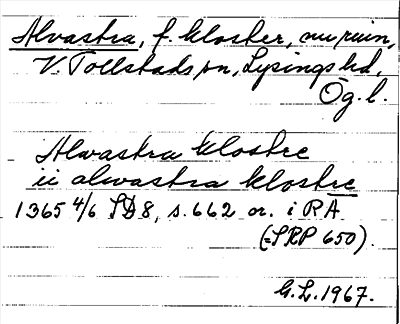 Alvastra, f. kloster, nu ruin,
V. Tollstads sn, Lysings hd,
Ög. l.
Alwastra klostre
ii alwastra klostre
1365 4/6 SD 8, s. 662 or. i RA
(=SRP 650).
G.L. 1967.